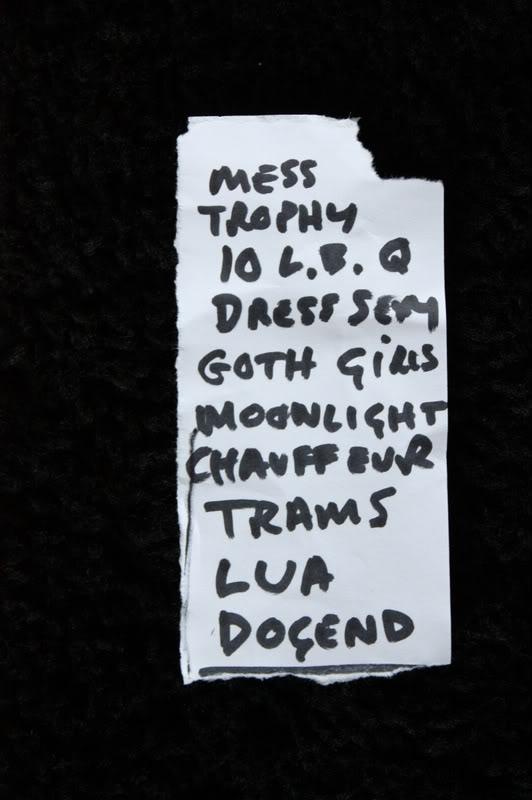 MESS
TROPHY
10 L.B.Q
DRESS SEXY
GOTH GiRLS
MOONLIGHT
CHAUFFEUR
TRAMS
LUA
DOGEND